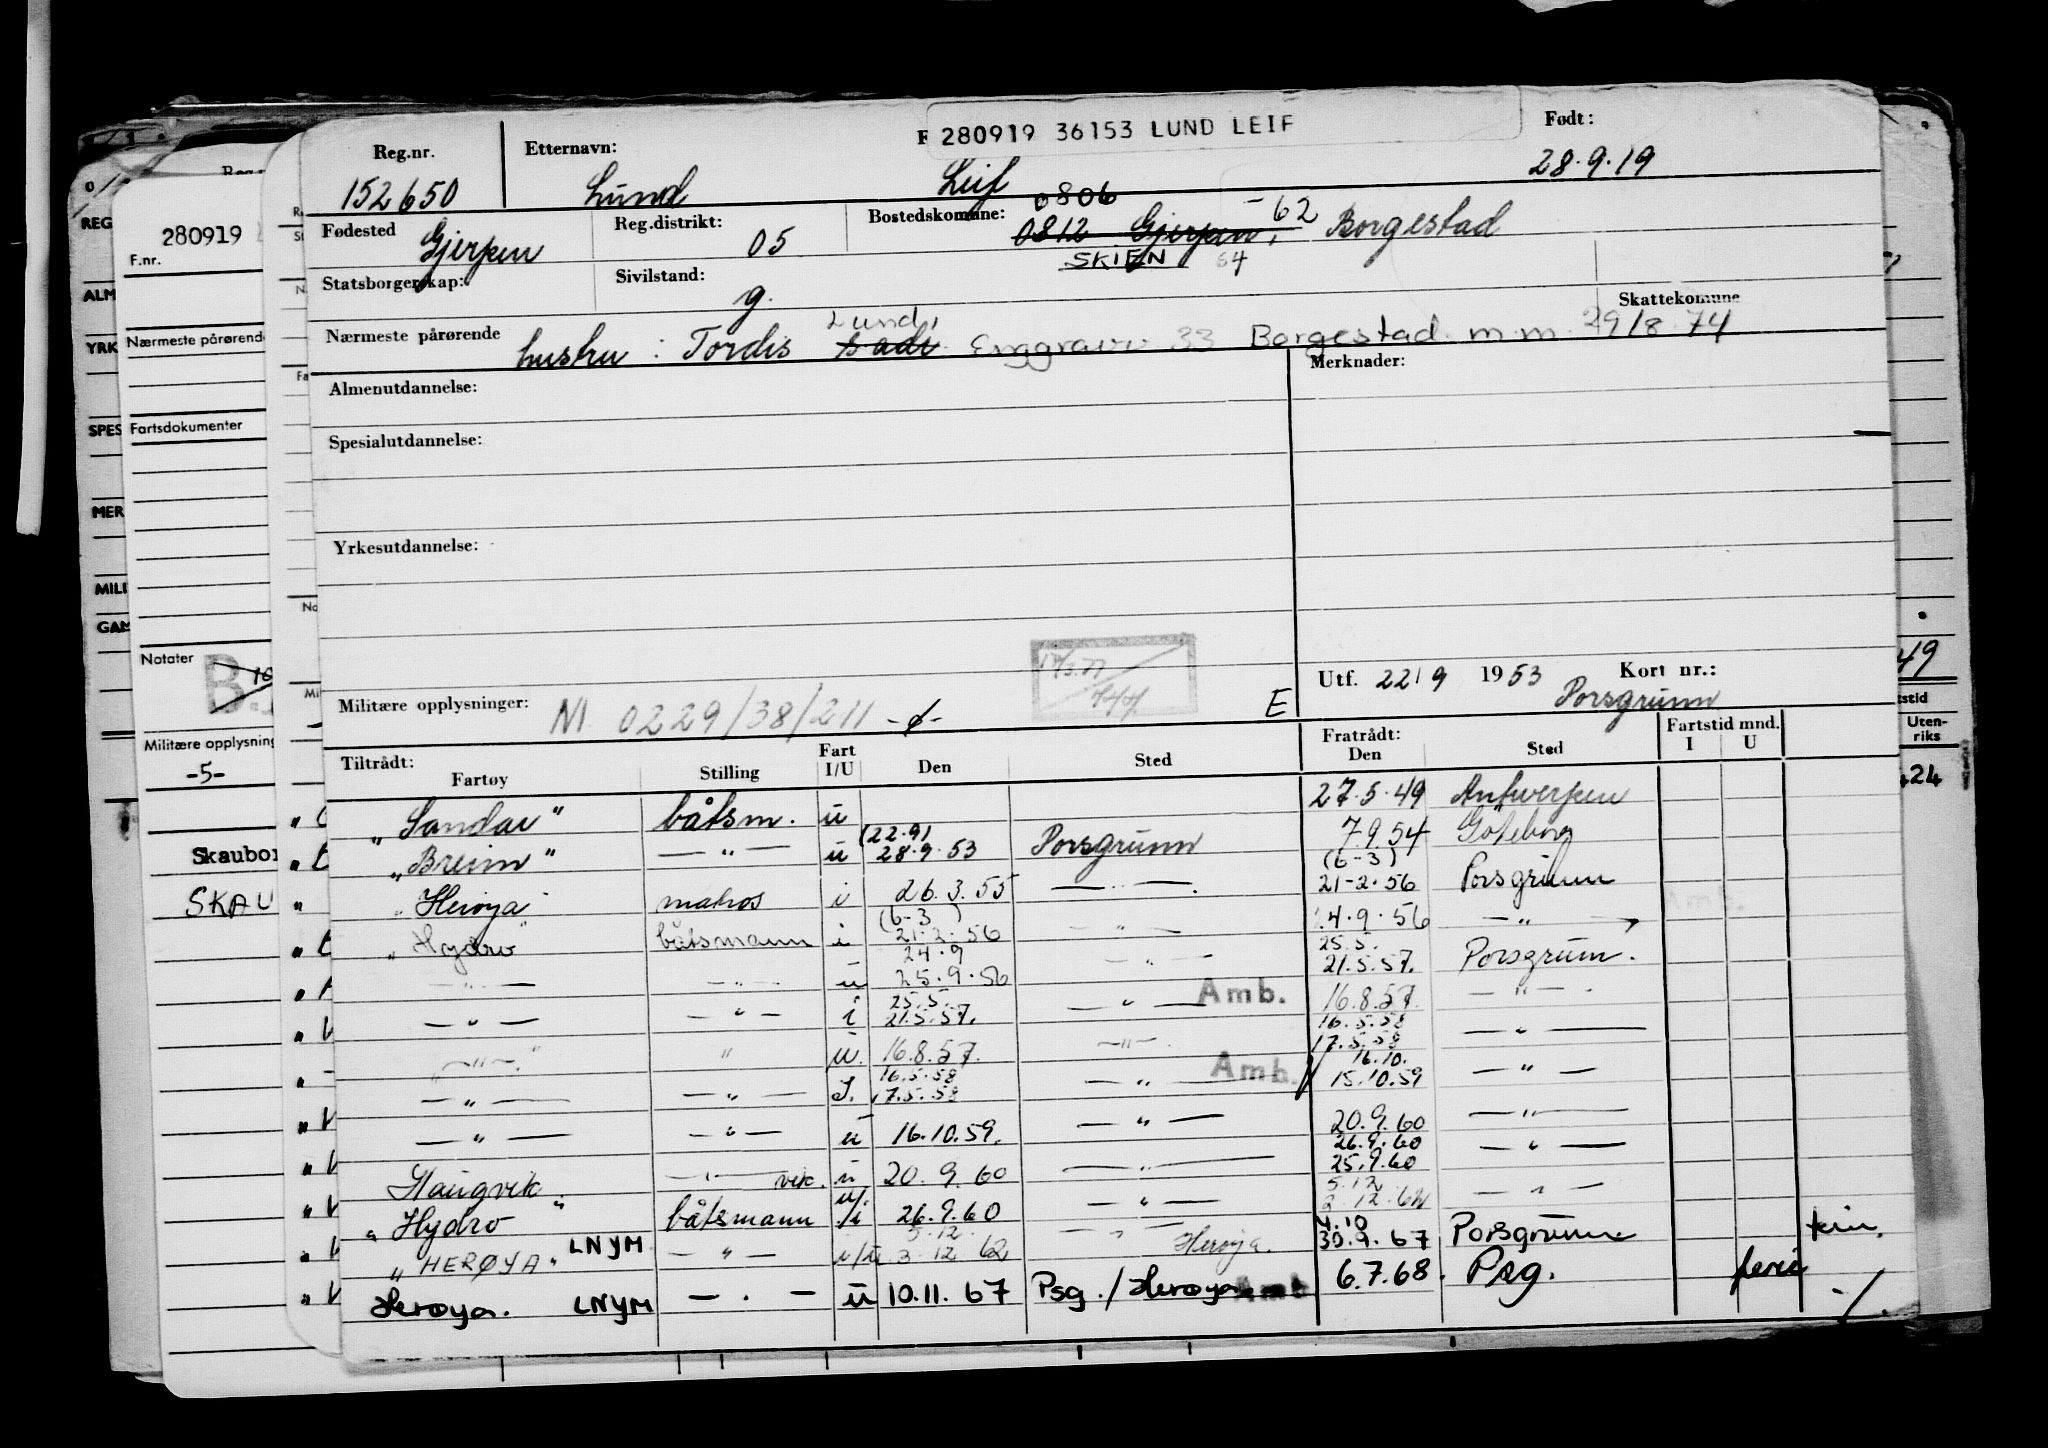 280919 36153 LUND LEIF
Reg.nr. Etternavn: F Født:
152650 Lund Leif 28.9.19
Fødested Reg.distrikt: Bostedskomune: 0806
Gjerpen 05 0812 Gjerpen, -62 Borgestad
SKIEN 64
Statsborgerskap: Sivilstand: g. Skattekomune
Nærmeste pårørende hustru: Tordis Lund, Enggravv 33 Borgestad m.m. 29/8 74
Almenutdannelse: Merknader:
Spesialutdannelse:
Yrkesutdannelse:
Utf. 22/9 1953 Kort nr.:
Porsgrunn
Militære opplysninger: NI 0229/38/211 E
Tiltrådt: Fart Fratrådt: Fartstid mnd.
Fartøy Stilling I/U Den Sted Den Sted I U
"Sandar" båtsm. u 27.5.49 Antwerpen
"Breim" — " — u (22.9) 28.9.53 Porsgrunn 7.9.54 Göteborg
"Herøya" matros i 26.3.55 — " — (6-3) 21-2-56 Porsgrunn
"Hydro" båtsmann i (6-3) 21-2-56 — " — 24.9.56 — " —
— " — — " — u 24.9 25.9.56 — " — 25.5. 21.5.57. Porsgrunn.
— " — — " — i 25.5. 21.5.57. — " — Amb. 16.8.57. — " —
— " — " u. 16.8.57. — " — 16.5.58 17.5.58 — " —
— " — — " — I. 16.5.58 17.5.58 — " — Amb. 16.10. 15.10.59 — " —
— " — — " — u 16.10.59. — " — 20.9.60 — " —
Haugvik — " — vik. u 20.9.60 — " — 26.9.60 25.9.60 — " —
"Hydro" båtsmann u/i 26.9.60 — " — 5.12 2.12.62 — " —
"HERØYA" LNYM — " — i/u 5.12 3.12 62 — " — Herøya. 4.10 30.9.67 Porsgrunn
Herøya. LNYM — " — u 10.11.67 Psg./Herøya Amb 6.7.68. Psg. ferie
280919
F.nr.
Nærmeste pårørende
Fartsdokumenter
Notater
Militære opplysning
-5-
Skaubor
SKAU
REG
ALM
YRK
SPES
MER
MILI
GAM
49
Uten-
riks
24